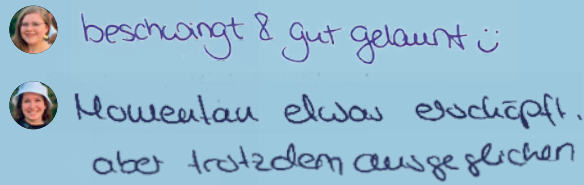 beschwingt & gut gelaunt ☺
Momentan etwas erschöpft.
aber trotzdem ausgeglichen